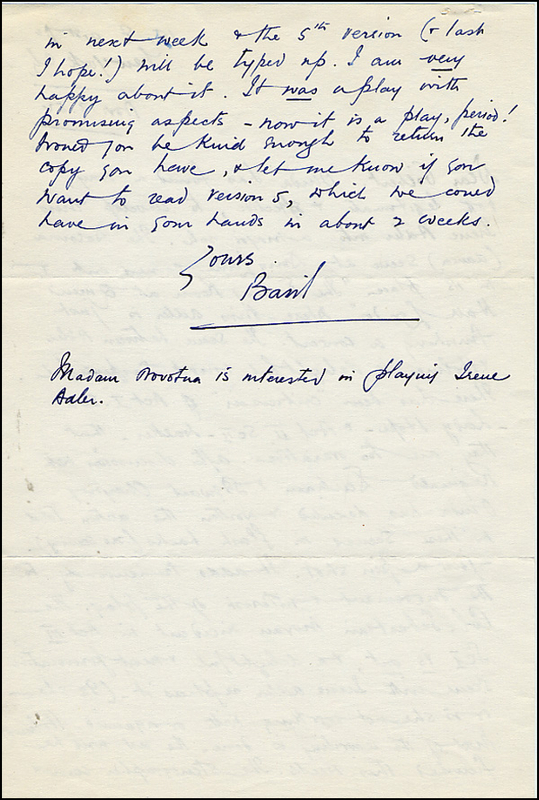 in next week & the 5th version (& last
I hope!) will be typed up. I am very
happy about it. It was a play with
promising aspects – now it is a play, period!
Would you be kind enough to return the
copy you have, & let me know if you
want to read version 5, which we could
have in your hands in about 2 weeks.
Yours
Basil
Madam Novotna is interested in playing Irene
Adler.